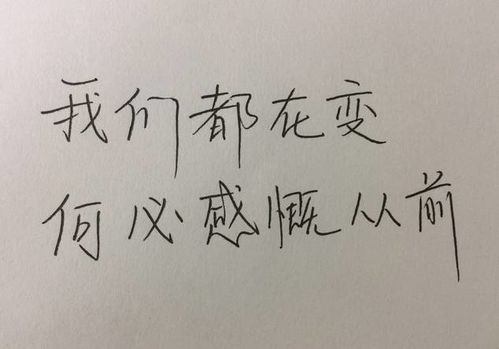 我们都在变
何必感慨从前